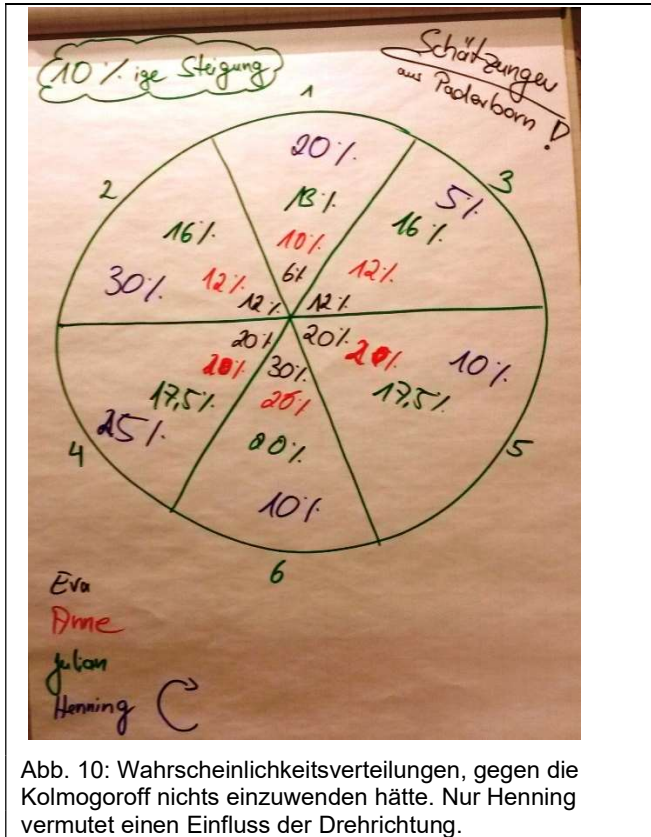 10 % ige Steigung
Schätzungen
aus Paderborn!
1
20%
13%
10%
6%
2
16%
30%
12%
12%
3
5%
16%
12%
12%
4
20%
20%
17,5%
25%
5
20%
20%
10%
17,5%
6
30%
26%
20%
10%
Eva
Arne
Julian
Henning
Abb. 10: Wahrscheinlichkeitsverteilungen, gegen die
Kolmogoroff nichts einzuwenden hätte. Nur Henning
vermutet einen Einfluss der Drehrichtung.